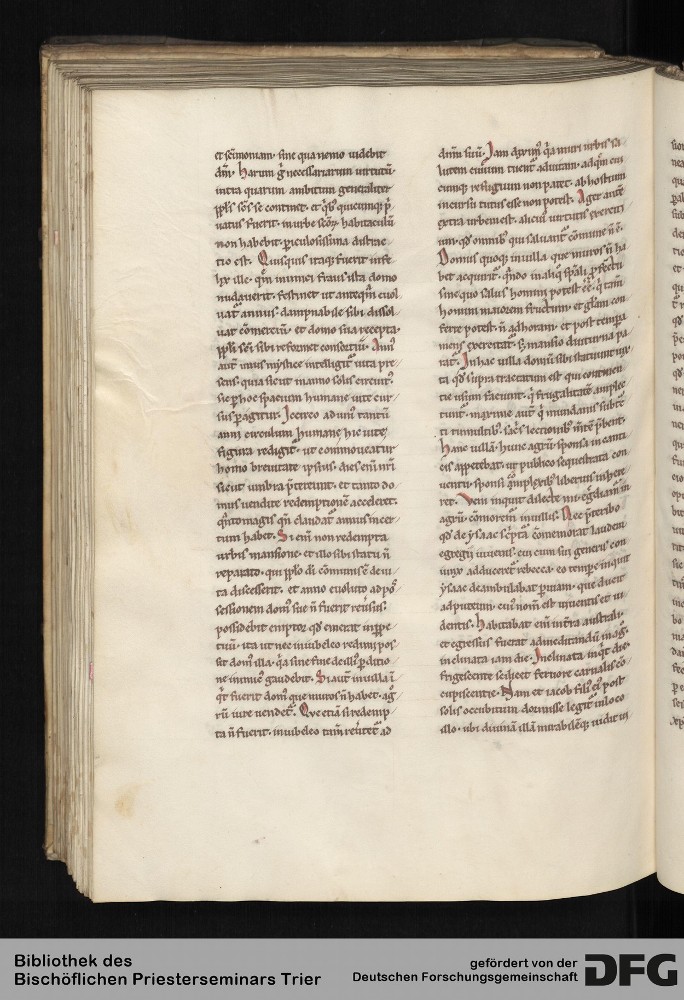 et sc̄imoniam· sine qua nemo uidebit
dn̄m· Harum g̊ necessariarum uirtutū·
intra quarum ambitum generaliter
uatus fuerit· in urbe sc̄oꝝ habitaculū
non habebit· piculosissima distinc
tio est· Quisquis itaq; fuerit infe
lix ille· que͞m inimici fraus ista domo
nudauerit· festinet ut anteq̄m euol
uat᷑ annus· dampnabile sibi dissol
uat cōmerciū· et domo sua recepta·
ppl̄i sc̄ii sibi reformet consortiū· Ann᷒
aut̄ unus mystice intelligit᷑ uita pre
sens· quia sicut in anno solis circuit᷒
sic p hoc spacium humane uite cur
sus pagitur· Icirco ad un᷒ tantū
anni circulum humanę hic uitę
figura redigit᷑· ut commoueatur
homo breuitate ipsius· dies eni͞m nr̄i
sicut umbra pt̄ereunt· et tanto do
mus uendite redemptionē acceleret·
quāto magis q̄n claudat᷑ annus incer
tum habet· Si eni͞m non redempta
urbis mansione· et illo sibi statu n̄
reparato· qui pplo di͞ communis ē de ui
ta discesserit· et anno euoluto ad pos
sessionem dom᷒ suę n̄ fuerit reuersus·
possidebit emptor qd emerat in ppe
tuū· ita ut nec in iubeleo redimi pos
sit dom᷒ illa· q̄a sine fine de illi᷒ pditio
ne inimic᷒ gaudebit· Si aut̄ in uilla ī
q̄t fuerit dom᷒ que muros n̄ habet· ag
rū iure uendet᷑· Que etiā si redemp
ta n̄ fuerit· in iubeleo tam̄ reuertet᷑ ad
dn̄m suū· Iam dixim᷒ q̄a muri urbis sa
lutem ciuium tuent᷑ ad uitam· ad qm̄ cui
cumq; refugium non patet· ab hostium
incursu tutus esse non potest· Ager aut̄
extra urbem est· alicui᷒ uirtutis exerciti
um· qd omnib᷒ qui saluant᷑ cōmune n̄ ē·
Domus quoq; in uilla que muros n̄ ha
sine quo salus homini potest eē· q̄ tam̄
homini maiorem fructum· et glam con
ferre potest· n̄ ad horam· et post tempora
mens exercitat᷑· s; mansio diuturna pa
rat᷑· In hac uilla domū sibi statuunt
ta qd supra tractatum est qui continen
tie usum faciunt· q̄ frugalitatē amplec
tunt᷑· maxime aut̄ q̄ mundanis subtrac
ti tumultib᷒· sacris lectionib᷒ mt̄em p̄bent·
Hanc uillā· hunc agrū· sponsa in canti
cis appetebat· ut publico sequestrata con
uentu· sponsi amplexib᷒ liberius inhere
ret· Veni inquit dilecte mi· egrediam᷑ in
agrū· cōmoremur in uillis· Nec pteribo
qd de ysaac scripta cōmemorat laudem
egregii iuuenis· cui cum sui generis con
iunx adduceret᷑ rebecca· eo tempe inquit
ysaac deambulabat p uiam· que ducit
ad puteum· cui᷒ nom̄ est uiuentis et ui
dentis· Habitabat eni͞m in tra australi·
et egressus fuerat ad meditandū in agro
inclinata iam die· Inclinata inq̄t die·
frigescente scilicet feruore carnalis con
cupiscentie· Nam et iacob fili᷒ ei᷒ post
solis occubitum dormisse legit᷑ in loco
illo· ubi diuinā illā mirabilēq; uidit ui
Bibliothek des
Bischöflichen Priesterseminars Trier
gefördert von der
Deutschen Forschungsgemeinschaft
DFG